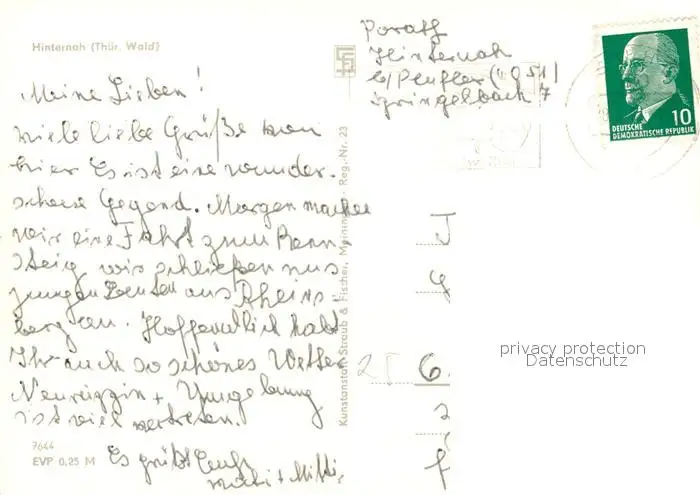 Hinternah (Thür. Wald)
Porath
Hinternah
b/Pfuffer (951)
Springelbach 7
10
DEUTSCHE
DEMOKRATISCHE REPUBLIK
Meine Lieben!
viele liebe Grüße von
hier Es ist eine wunder-
schöne Gegend. Morgen machen
wir eine Fahrt zum Renn-
steig wir schließen uns
jungen Leuten aus Rheins
berg an. Hoffentlich habt
Ihr auch so schönes Wetter
Neuruppin + Umgebung
ist viel vertreten.
Es grüßt Euch
+
7644
EVP 0,25 M
Kunstanstalt Straub & Fischer, Meiningen · Reg.-Nr. 23
privacy protection
Datenschutz